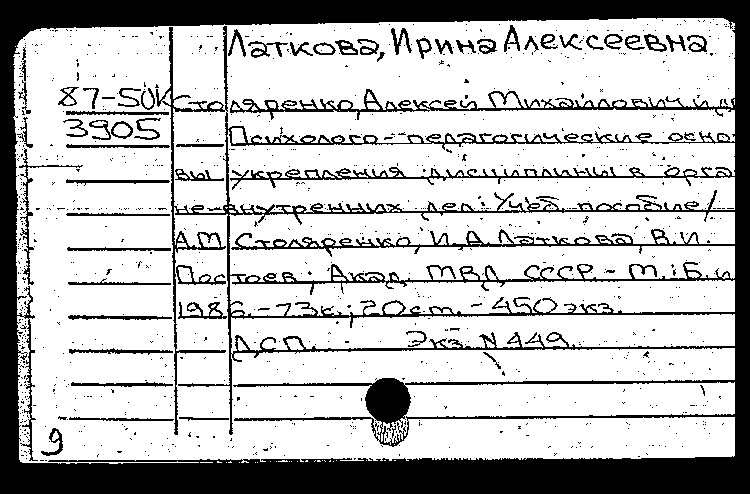 Латкова, Ирина Алексеевна.
87-50К Столяренко, Алексей Михайлович и др
3905 Психолого-педагогические осно-
вы укрепления дисциплины в орга-
не внутренних дел: Учеб. пособие /
А.М Столяренко, И.А. Латкова, В.И.
Постоев; Акад. МВД СССР. - М.: Б. и
1986. - 73 к.; 20 см. - 450 экз.
ДСП. Экз. N 449
9